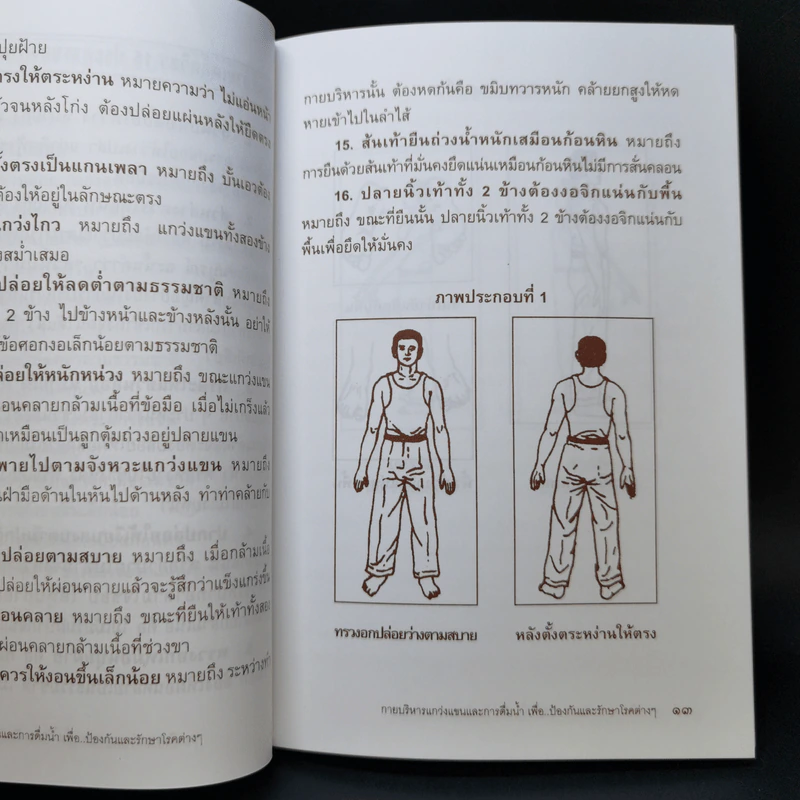 ปุยฝ้าย
ตรงให้ตระหง่าน หมายความว่า ไม่แอ่นหน้า
จนหลังโก่ง ต้องปล่อยแผ่นหลังให้ยืดตรง
ตั้งตรงเป็นแกนเพลา หมายถึง บั้นเอวต้อง
ต้องให้อยู่ในลักษณะตรง
แกว่งไกว หมายถึง แกว่งแขนทั้งสองข้าง
สม่ำเสมอ
ปล่อยให้ลดต่ำตามธรรมชาติ หมายถึง
2 ข้าง ไปข้างหน้าและข้างหลังนั้น อย่าให้
ข้อศอกงอเล็กน้อยตามธรรมชาติ
ล่อยให้หนักหน่วง หมายถึง ขณะแกว่งแขน
ผ่อนคลายกล้ามเนื้อที่ข้อมือ เมื่อไม่เกร็งแล้ว
เหมือนเป็นลูกตุ้มถ่วงอยู่ปลายแขน
พายไปตามจังหวะแกว่งแขน หมายถึง
ฝ่ามือด้านในหันไปด้านหลัง ทำท่าคล้ายกับ
ปล่อยตามสบาย หมายถึง เมื่อกล้ามเนื้อ
ปล่อยให้ผ่อนคลายแล้วจะรู้สึกว่าแข็งแกร่งขึ้น
อนคลาย หมายถึง ขณะที่ยืนให้เท้าทั้งสอง
ผ่อนคลายกล้ามเนื้อที่ช่วงขา
ควรให้งอนขึ้นเล็กน้อย หมายถึง ระหว่างทำ
และการดื่มน้ำ เพื่อ..ป้องกันและรักษาโรคต่างๆ
กายบริหารนั้น ต้องหดก้นคือ ขมิบทวารหนัก คล้ายยกสูงให้หด
หายเข้าไปในลำไส้
15. ส้นเท้ายืนถ่วงน้ำหนักเสมือนก้อนหิน หมายถึง
การยืนด้วยส้นเท้าที่มั่นคงยึดแน่นเหมือนก้อนหินไม่มีการสั่นคลอน
16. ปลายนิ้วเท้าทั้ง 2 ข้างต้องงอจิกแน่นกับพื้น
หมายถึง ขณะที่ยืนนั้น ปลายนิ้วเท้าทั้ง 2 ข้างต้องงอจิกแน่นกับ
พื้นเพื่อยึดให้มั่นคง
ภาพประกอบที่ 1
ทรวงอกปล่อยว่างตามสบาย
หลังตั้งตระหง่านให้ตรง
กายบริหารแกว่งแขนและการดื่มน้ำ เพื่อ..ป้องกันและรักษาโรคต่างๆ ๑๓